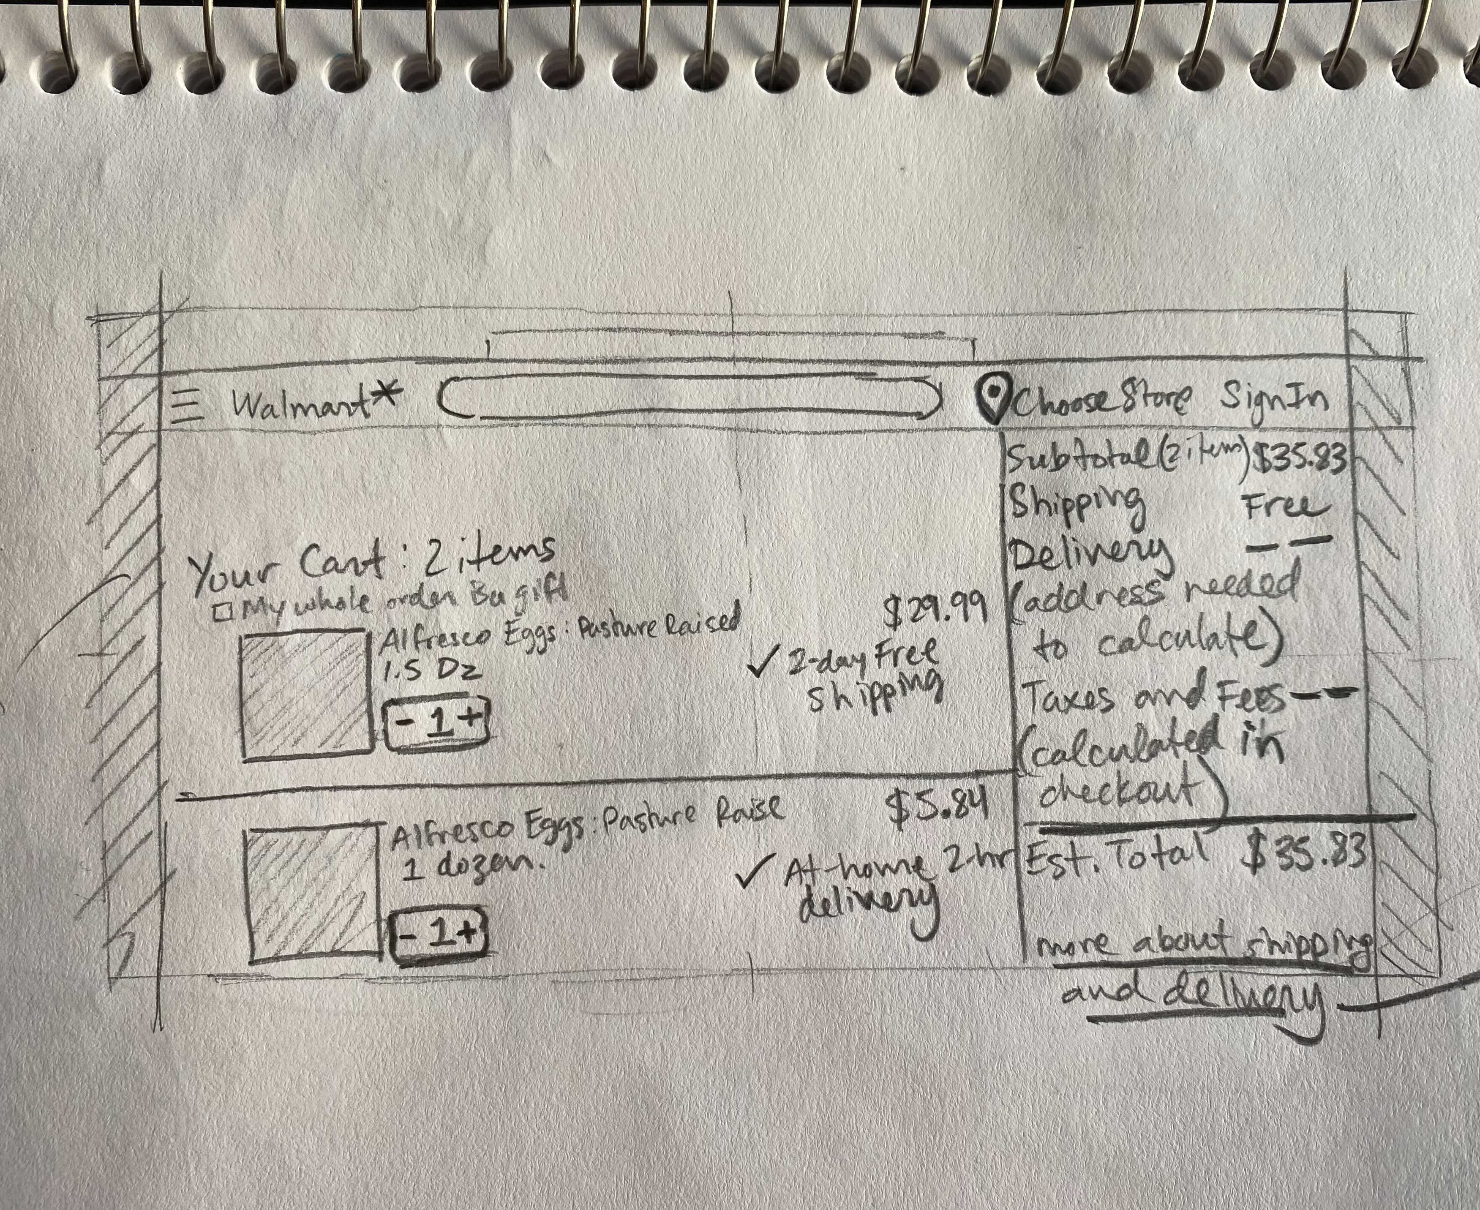 Walmart*
Choose Store Sign In
Your Cart: 2 items
My whole order is a gift
Alfresco Eggs: Pasture Raised
1.5 Dz
- 1 +
$29.99
✓ 2-day Free
shipping
Alfresco Eggs: Pasture Raise
1 dozen.
- 1 +
$5.84
✓ At-home 2-hr
delivery
Subtotal (2 item) $35.83
Shipping Free
Delivery – –
(address needed
to calculate)
Taxes and Fees – –
(calculated in
checkout)
Est. Total $35.83
more about shipping
and delivery